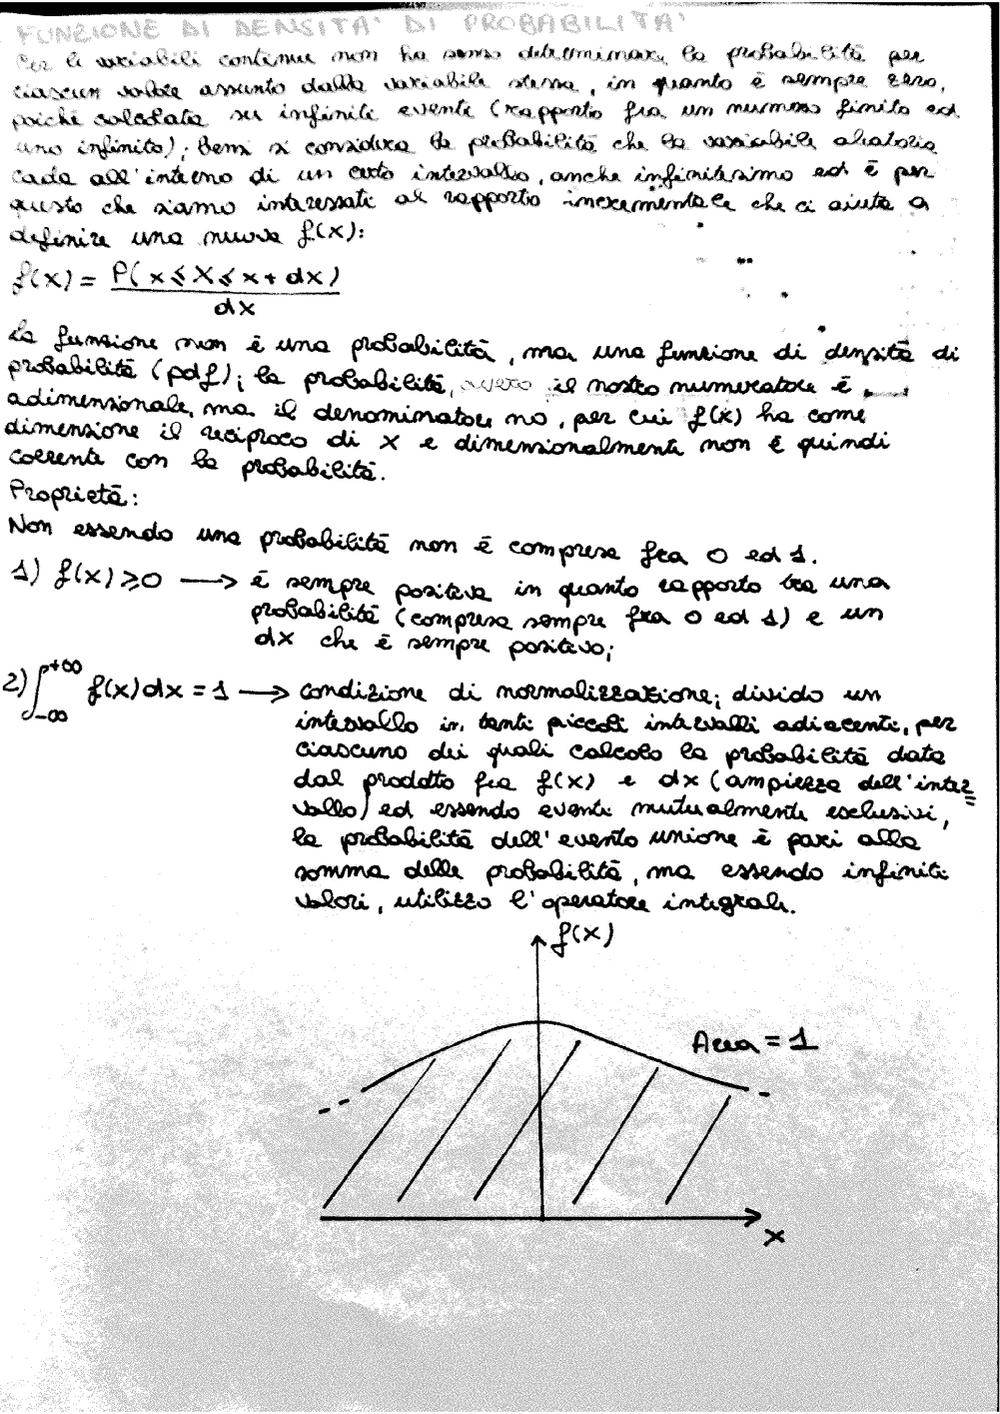 FUNZIONE DI DENSITA' DI PROBABILITA'
Per le variabili continue non ha senso determinare la probabilità per
ciascun valore assunto dalla variabile stessa, in quanto è sempre zero,
poiché calcolata su infiniti eventi (rapporto fra un numero finito ed
uno infinito); bensì si considera la probabilità che la variabile aleatoria
cada all'interno di un certo intervallo, anche infinitesimo ed è per
questo che siamo interessati al rapporto incrementale che ci aiuta a
definire una nuova f(x):
f(x) = P( x ≤ X ≤ x + dx )
dx
La funzione non è una probabilità, ma una funzione di densità di
probabilità (pdf); la probabilità, ovvero il nostro numeratore è
adimensionale, ma il denominatore no, per cui f(x) ha come
dimensione il reciproco di x e dimensionalmente non è quindi
coerente con la probabilità.
Proprietà:
Non essendo una probabilità non è compresa fra 0 ed 1.
1) f(x) ≥ 0 → è sempre positiva in quanto rapporto tra una
probabilità (compresa sempre fra 0 ed 1) e un
dx che è sempre positivo;
2) ∫ +∞ -∞ f(x) dx = 1 → condizione di normalizzazione; divido un
intervallo in tanti piccoli intervalli adiacenti, per
ciascuno dei quali calcolo la probabilità data
dal prodotto fra f(x) e dx (ampiezza dell'inter=
vallo) ed essendo eventi mutualmente esclusivi,
la probabilità dell'evento unione è pari alla
somma delle probabilità, ma essendo infiniti
valori, utilizzo l'operatore integrale.
f(x)
Area = 1
x